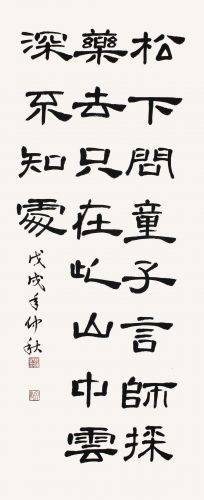 松下問童子言師採
藥去只在此山中雲
深不知處
戊戌年仲秋